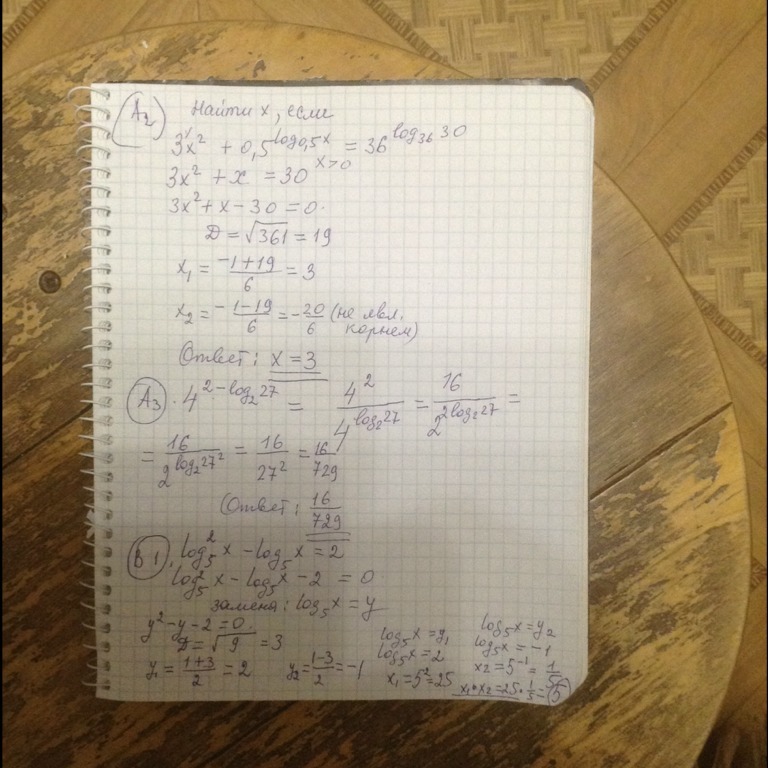 A2 Найти x, если
3x² + 0,5^(log0,5 x) = 36^(log36 30)
x>0
3x² + x = 30
3x² + x - 30 = 0.
D = √361 = 19
x₁ = (-1+19)/6 = 3
x₂ = (-1-19)/6 = -20/6 (не явл. корнем)
Ответ: x = 3
A3. 4^(2-log₂27) = 4²/4^(log₂27) = 16/2^(2log₂27) =
= 16/2^(log₂27²) = 16/27² = 16/729
Ответ: 16/729
B1. log₅²x - log₅x = 2
log₅²x - log₅x - 2 = 0
замена: log₅x = y
y² - y - 2 = 0.
D = √9 = 3
y₁ = (1+3)/2 = 2 y₂ = (1-3)/2 = -1
log₅x = y₁
log₅x = 2
x₁ = 5² = 25
log₅x = y₂
log₅x = -1
x₂ = 5⁻¹ = 1/5
x₁•x₂ = 25•1/5 = 5